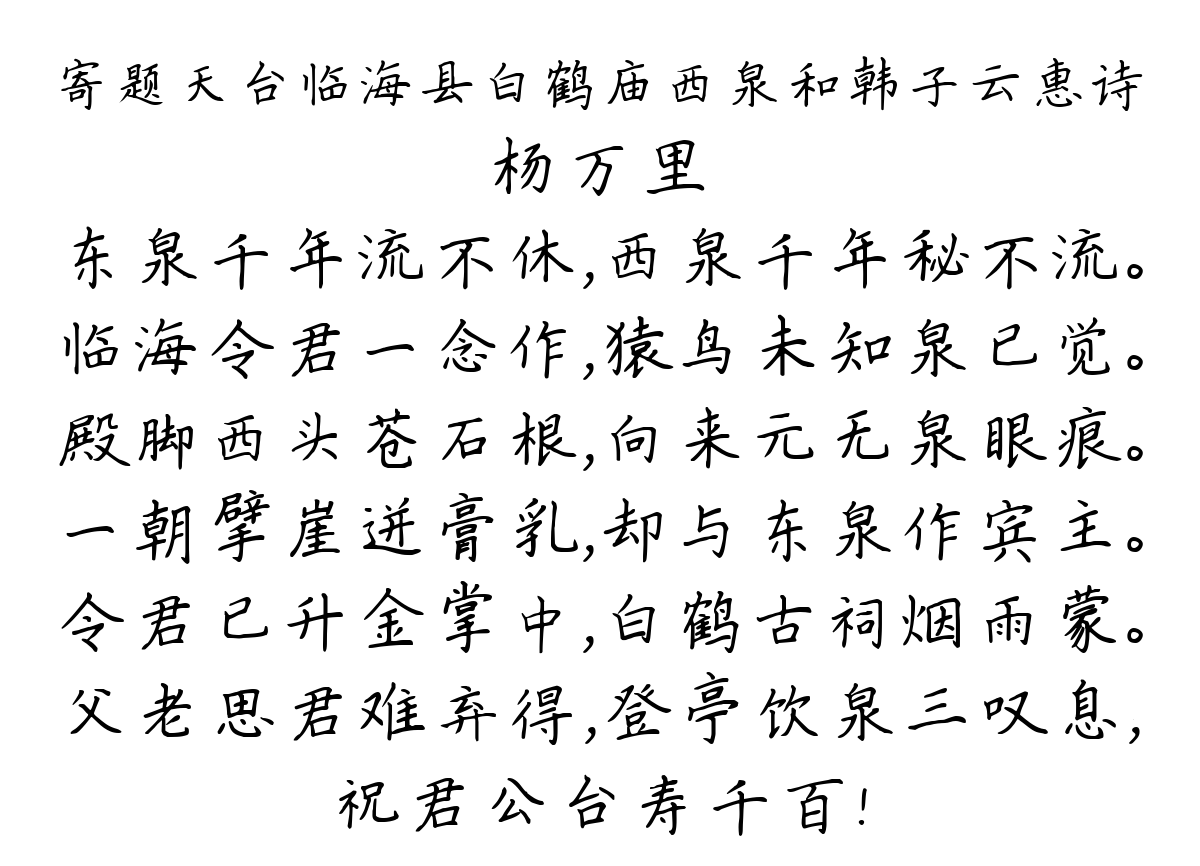 寄题天台临海县白鹤庙西泉和韩子云惠诗
杨万里
东泉千年流不休,西泉千年秘不流。
临海令君一念作,猿鸟未知泉已觉。
殿脚西头苍石根,向来元无泉眼痕。
一朝擘崖迸膏乳,却与东泉作宾主。
令君已升金掌中,白鹤古祠烟雨蒙。
父老思君难弃得,登亭饮泉三叹息,
祝君公台寿千百!